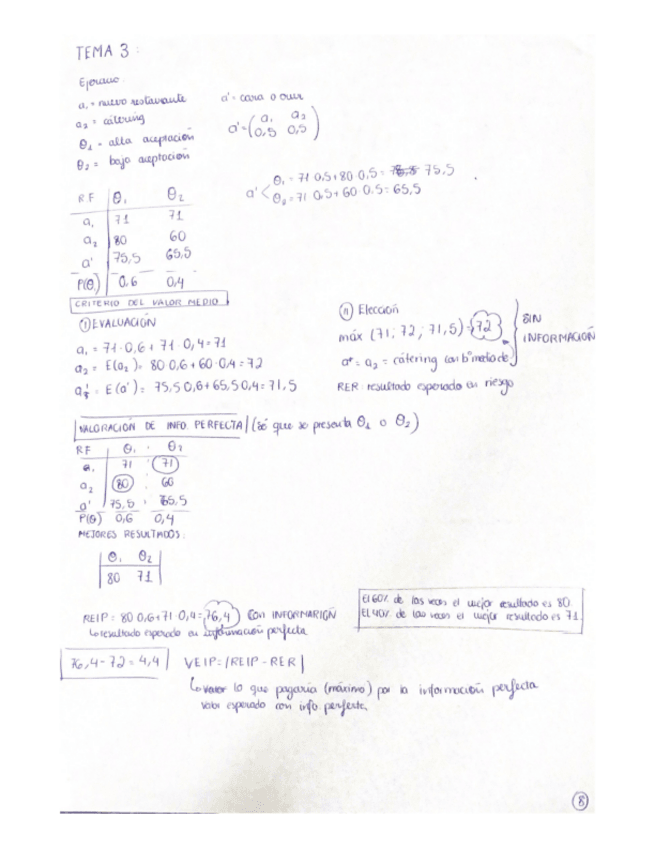 TEMA 3:
Ejercicio:
a₁ = nuevo restaurante
a₂ = cátering
θ₁ = alta aceptación
θ₂ = baja aceptación
a' = cara o cruz
a' = (a₁ a₂
0,5 0,5)
a' < θ₁ = 71·0,5+80·0,5 = 75,5
θ₂ = 71·0,5+60·0,5 = 65,5
RF θ₁ θ₂
a₁ 71 71
a₂ 80 60
a' 75,5 65,5
P(θ) 0,6 0,4
CRITERIO DEL VALOR MEDIO
① EVALUACIÓN
a₁ = 71·0,6 + 71·0,4 = 71
a₂ = E(a₂) = 80·0,6+60·0,4 = 72
E(a') = 75,5·0,6+65,5·0,4 = 71,5
② Elección
máx (71; 72; 71,5) = 72
a* = a₂ = cátering con bº medio de
RER: resultado esperado en riesgo
SIN
INFORMACIÓN
VALORACIÓN DE INFO. PERFECTA (sé que se presenta θ₁ o θ₂)
RF θ₁ θ₂
a₁ 71 71
a₂ 80 60
a' 75,5 65,5
P(θ) 0,6 0,4
MEJORES RESULTADOS:
θ₁ θ₂
80 71
REIP: 80·0,6+71·0,4 = 76,4 CON INFORMACIÓN
↳ resultado esperado en información perfecta
El 60% de las veces el mejor resultado es 80.
El 40% de las veces el mejor resultado es 71
76,4 - 72 = 4,4 VEIP = |REIP - RER|
↳ valor lo que pagaría (máximo) por la información perfecta
valor esperado con info. perfecta
8